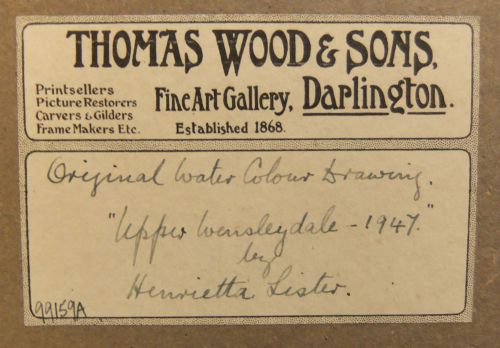 THOMAS WOOD & SONS,
Printsellers
Picture Restorers
Carvers & Gilders
Frame Makers Etc.
Fine Art Gallery, Darlington.
Established 1868.
Original Water Colour Drawing.
"Upper Wensleydale - 1947."
by
Henrietta Lister.
99159A